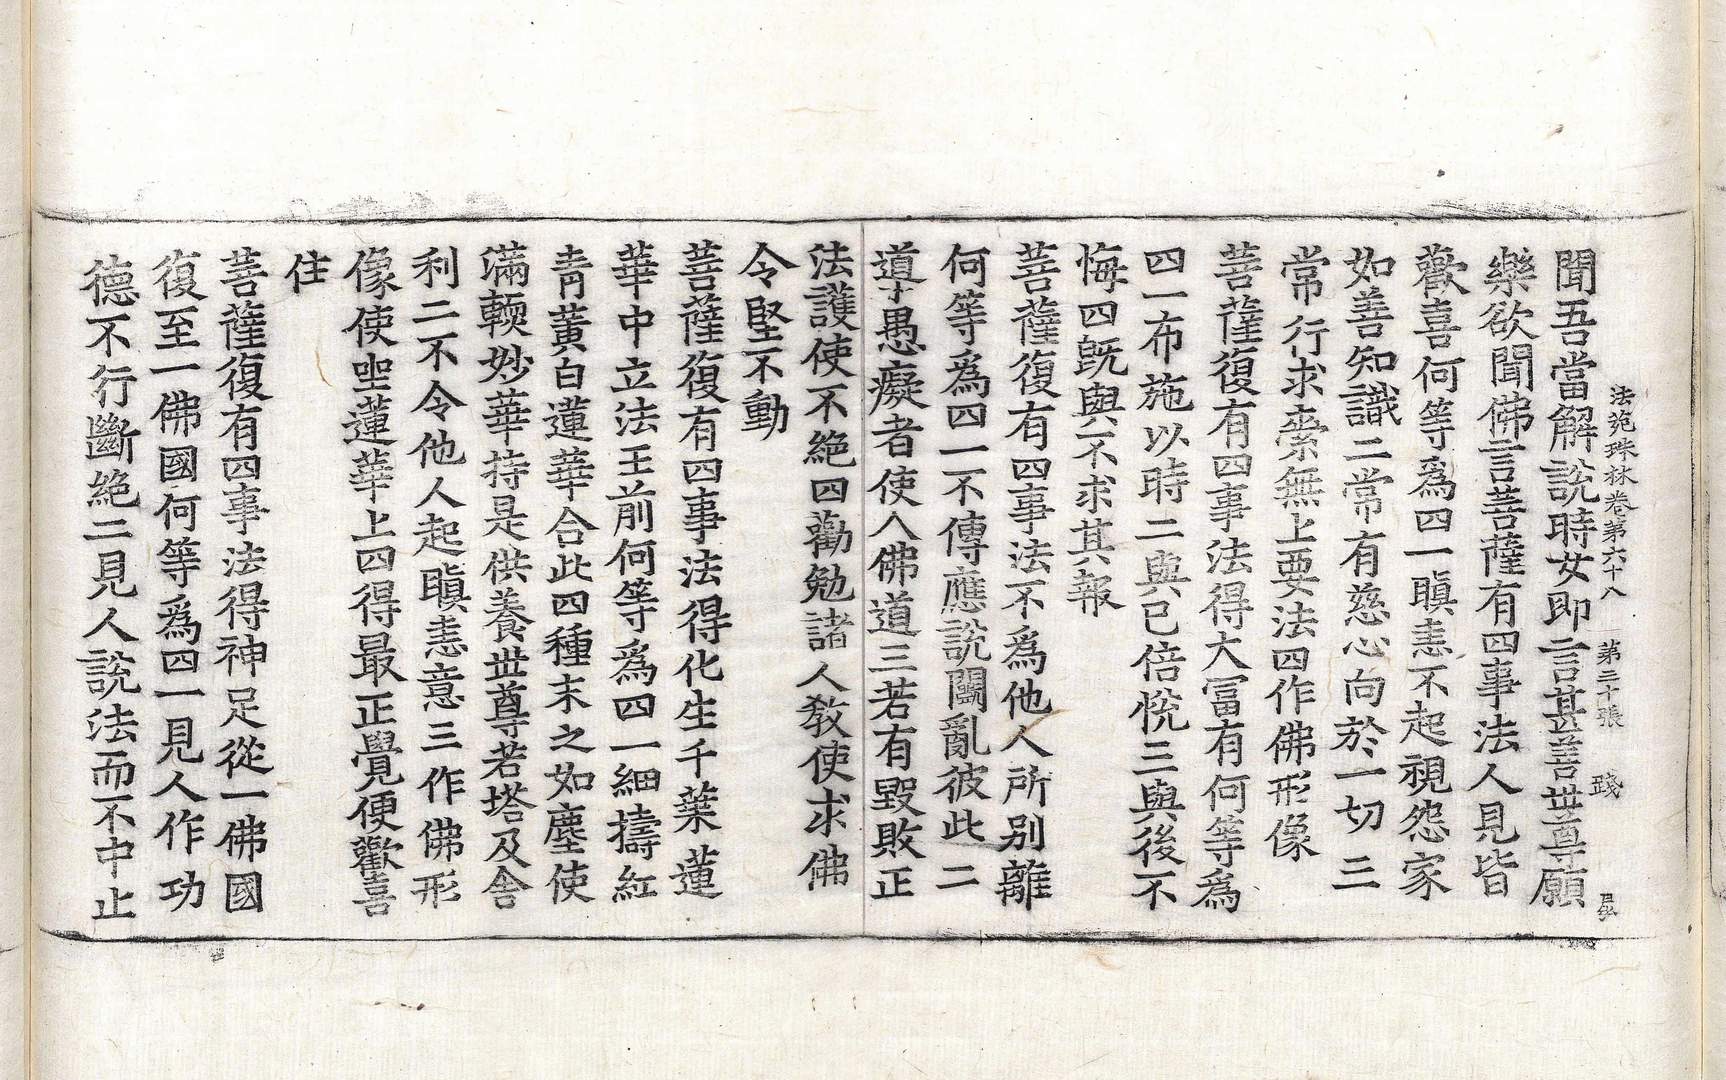 法苑珠林卷第六十八　第三十張　踐
聞吾當解說時女即言甚善世尊願
樂欲聞佛言菩薩有四事法人見皆
歡喜何等爲四一瞋恚不起視怨家
如善知識二常有慈心向於一切三
常行求索無上要法四作佛形像
菩薩復有四事法得大冨有何等爲
四一布施以時二與已倍悅三與後不
悔四旣與不求其報
菩薩復有四事法不爲他人所別離
何等爲四一不傳應說鬪亂彼此二
道㐧愚癡者使入佛道三若有毀敗正
法護使不絶四勸勉諸人敎使求佛
令堅不動
菩薩復有四事法得化生千葉蓮
華中立法王前何等爲四一細擣紅
青黃白蓮華合此四種末之如塵使
滿輭妙華持是供養世尊若塔及舍
利二不令他人起瞋恚意三作佛形
像使坐蓮華上四得最正覺便歡喜
住
菩薩復有四事法得神足從一佛國
復至一佛國何等爲四一見人作功
德不行斷絶二見人說法而不中止